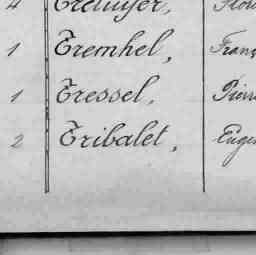 1 Tremhel, Franç
1 Tressel, Pierre
2 Tribalet, Eugen